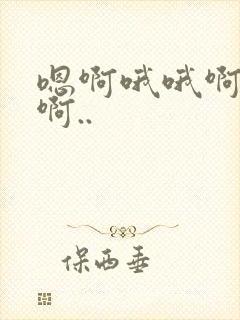 嗯啊哦哦啊
啊..
保西垂